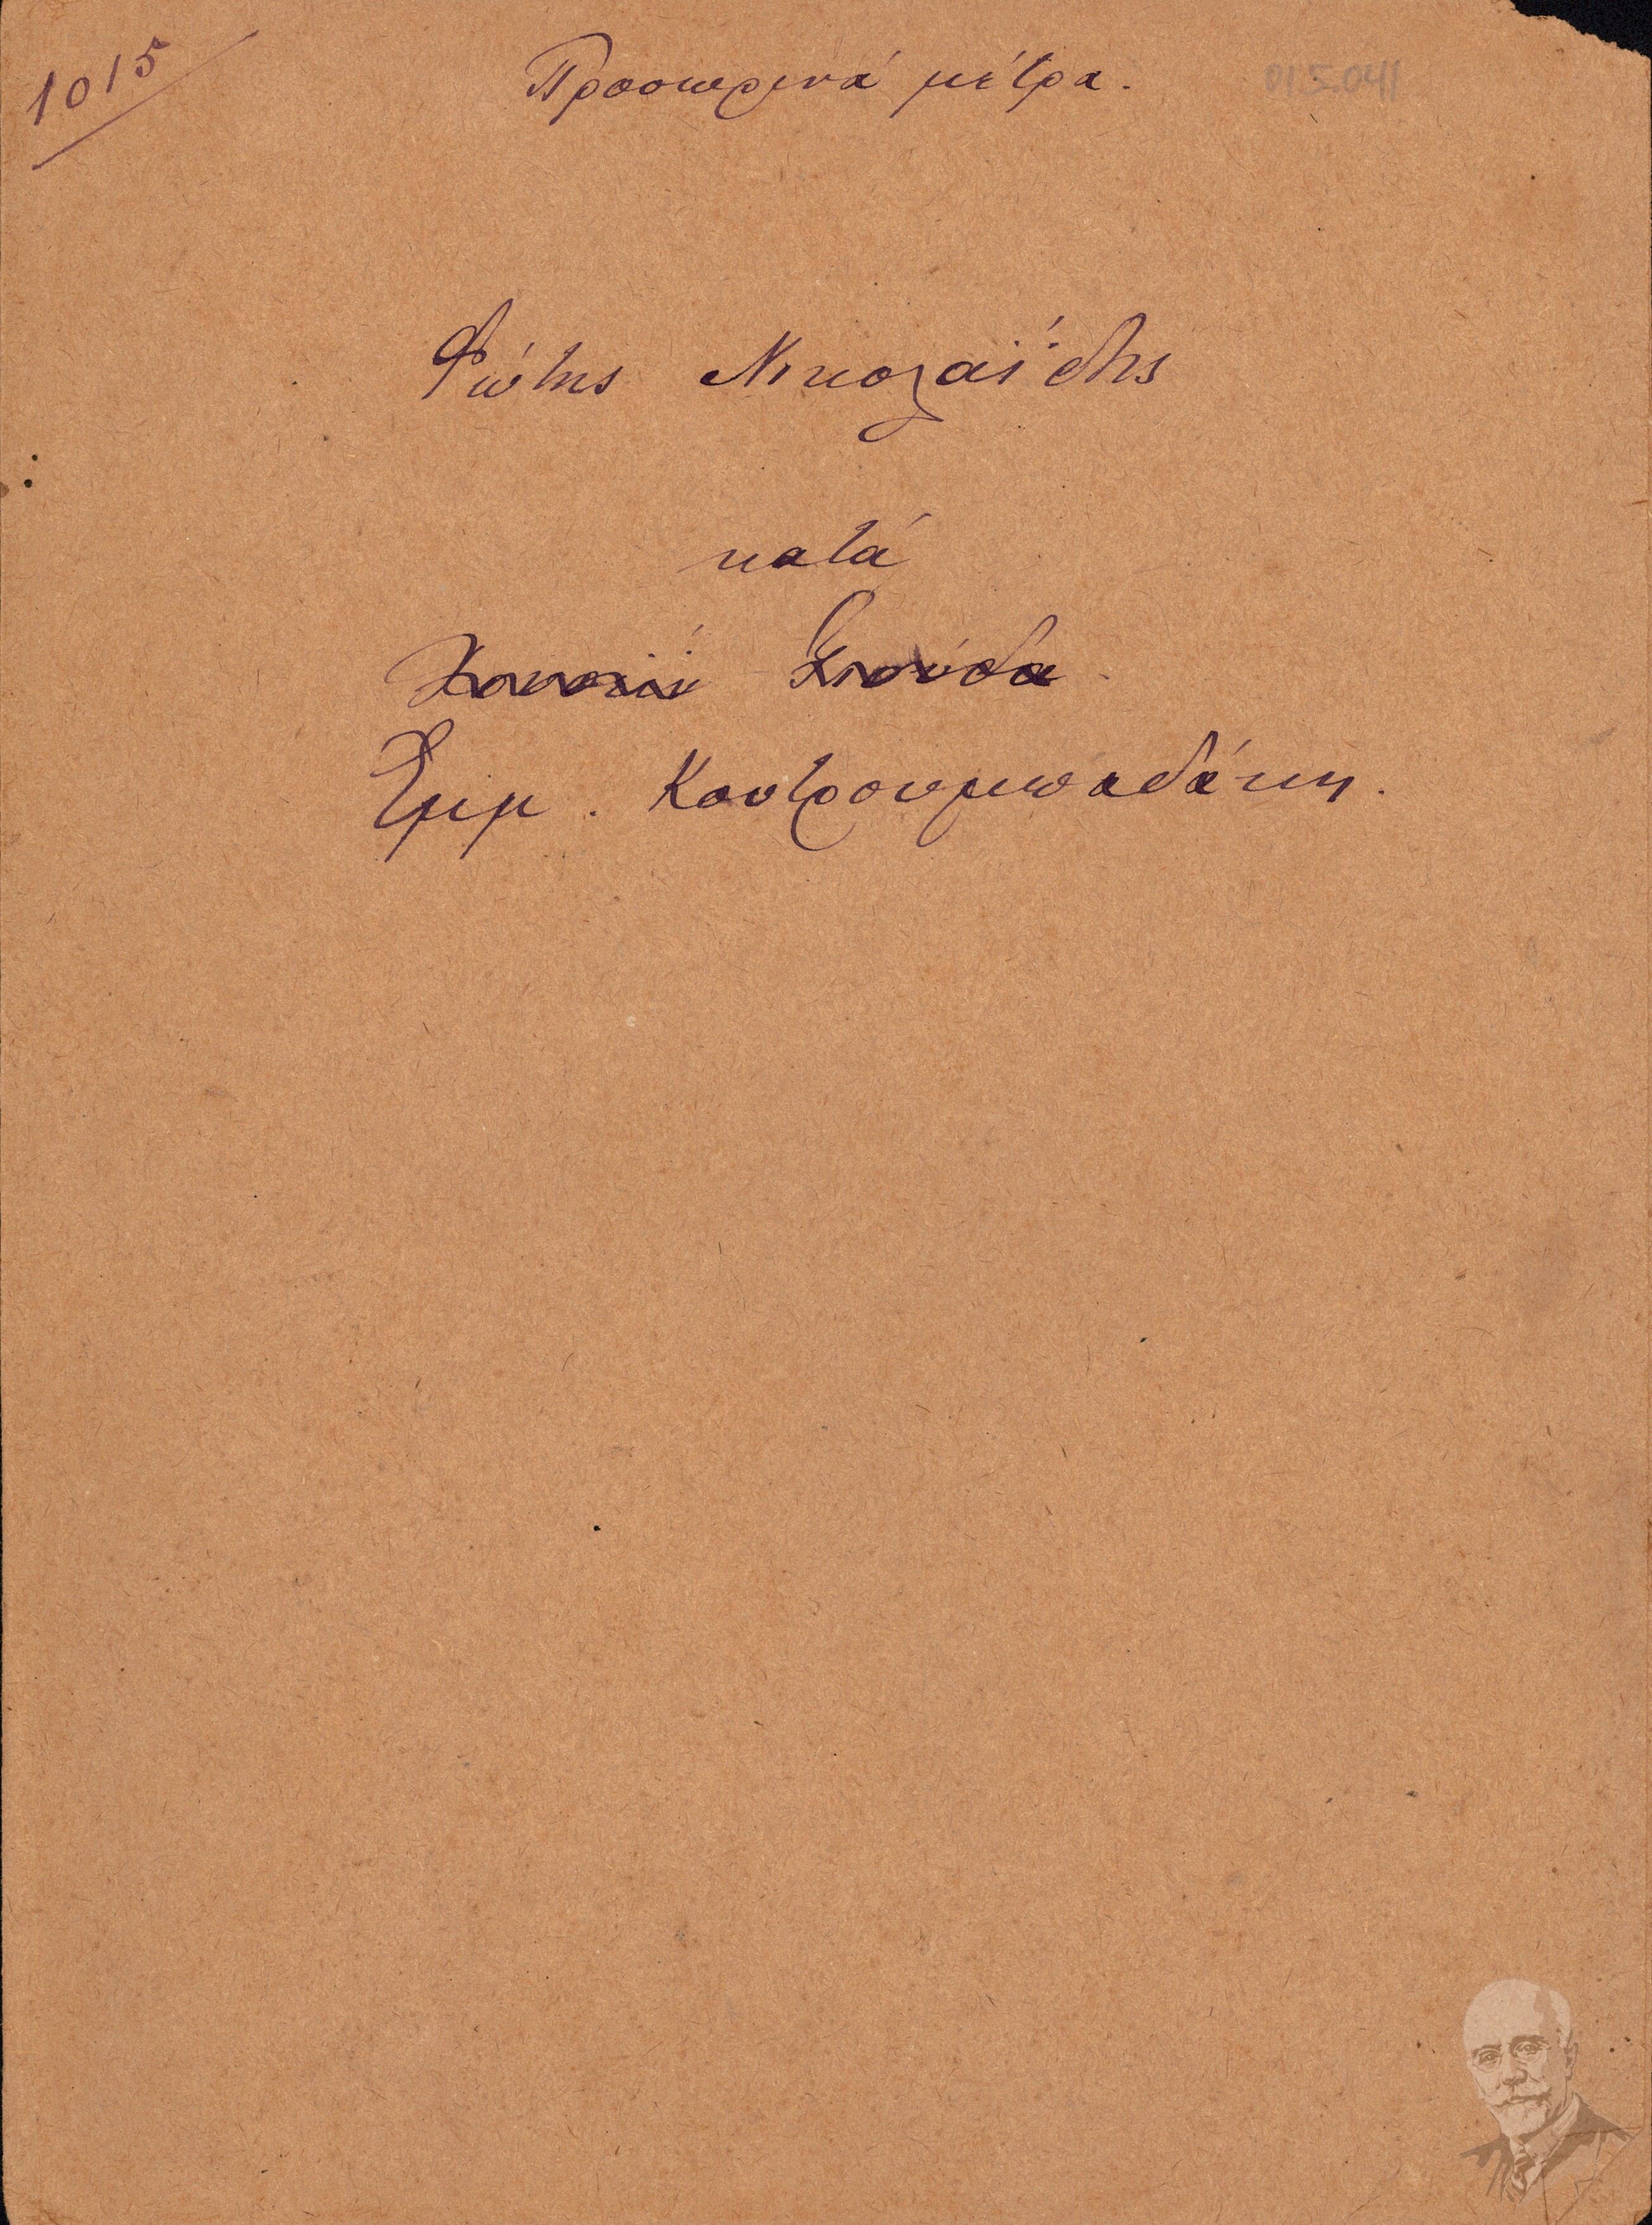 1015
Προσωρινά μέτρα.
01.5.041
Φώτης Νικολαΐδης
κατά
Εμμ. Κουτρουμπαδάκη.